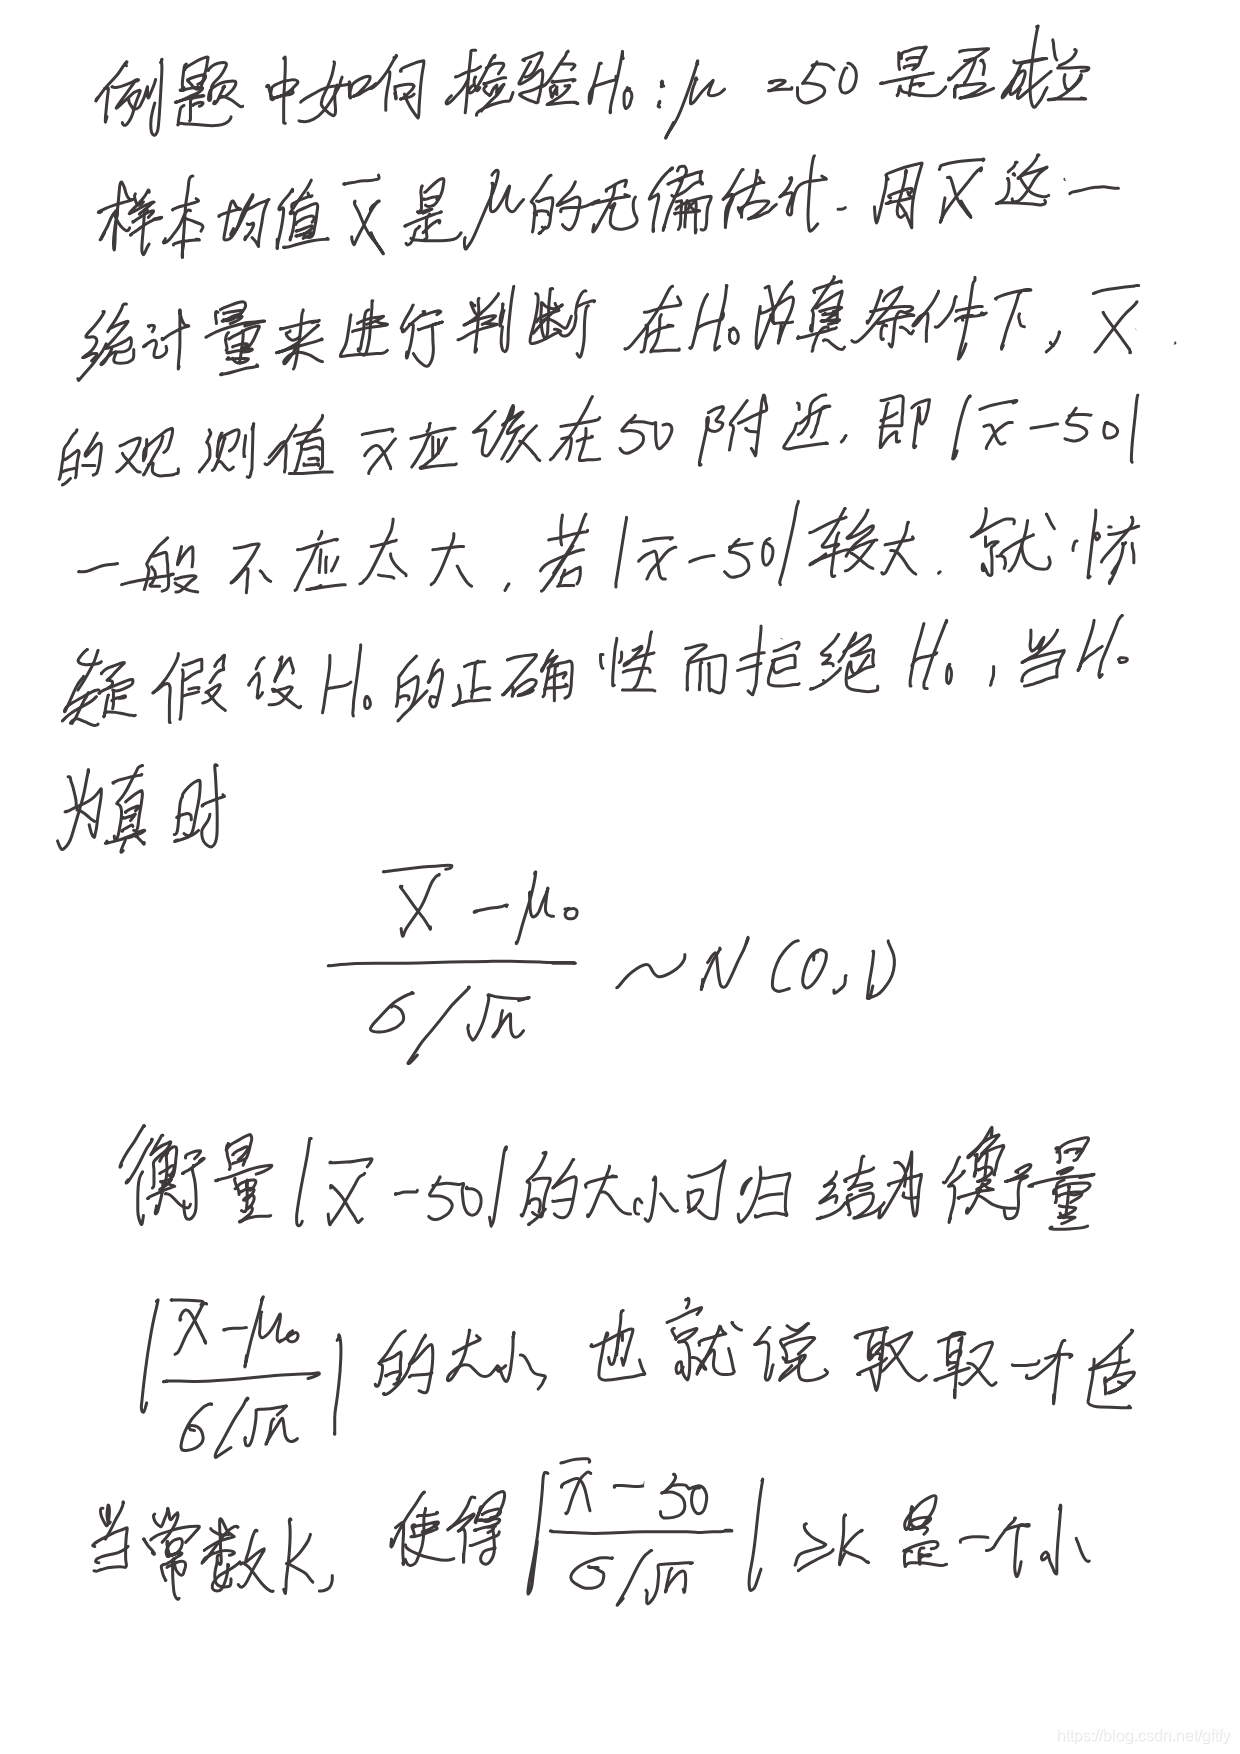 例题中如何检验H₀:μ=50是否成立
样本均值X̅是μ的无偏估计.用X̅这一
统计量来进行判断 在H₀为真条件下,X̅
的观测值x̅应该在50附近.即|x̅-50|
一般不应太大,若|x̅-50|较大.就怀
疑假设H₀的正确性而拒绝H₀,当H₀
为真时
(X̅-μ₀)/(σ/√n) ~ N(0,1)
衡量|X̅-50|的大小可归结为衡量
|(x̅-μ₀)/(σ/√n)|的大小,也就说取取一个适
当常数K,使得|(x̅-50)/(σ/√n)|≥K是一个小
https://blog.csdn.net/giftfy